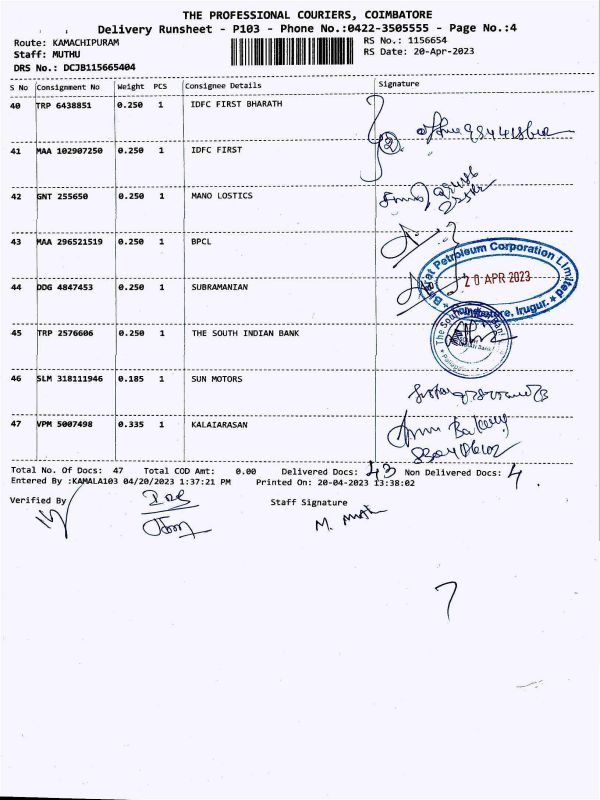 THE PROFESSIONAL COURIERS, COIMBATORE
Delivery Runsheet - P103 - Phone No.:0422-3505555 - Page No.:4
Route: KAMACHIPURAM RS No.: 1156654
Staff: MUTHU RS Date: 20-Apr-2023
DRS No.: DCJB115665404
S No Consignment No Weight PCS Consignee Details Signature
40 TRP 6438851 0.250 1 IDFC FIRST BHARATH
41 MAA 102907250 0.250 1 IDFC FIRST
42 GNT 255650 0.250 1 MANO LOSTICS
43 MAA 296521519 0.250 1 BPCL
Bharat Petroleum Corporation Limited
20 APR 2023
Coimbatore, Irugur.
44 DDG 4847453 0.250 1 SUBRAMANIAN
45 TRP 2576606 0.250 1 THE SOUTH INDIAN BANK
46 SLM 318111946 0.185 1 SUN MOTORS
47 VPM 5007498 0.335 1 KALAIARASAN
Total No. Of Docs: 47 Total COD Amt: 0.00 Delivered Docs: 43 Non Delivered Docs: 4
Entered By :KAMALA103 04/20/2023 1:37:21 PM Printed On: 20-04-2023 13:38:02
Verified By Staff Signature
M. Muth